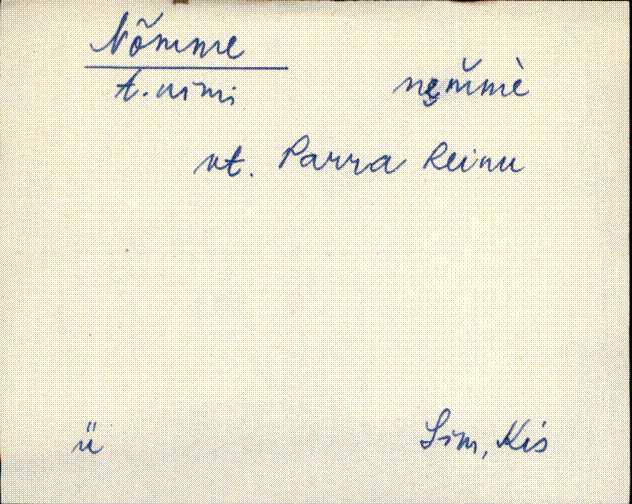 Nõmme
t. nimi nẹm̆mè
vt. Parra Reinu
ü Sim, Kis